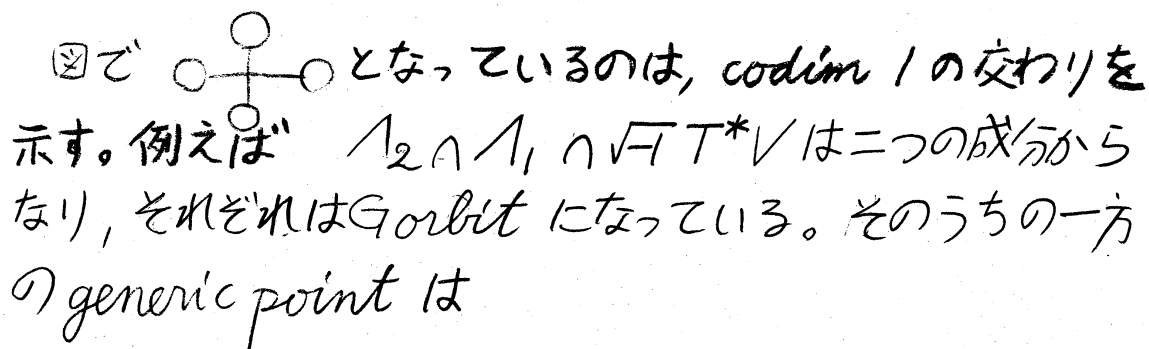 図で となっているのは, codim 1 の交わりを
示す。例えば Λ₂∩Λ₁∩√-1 T*V は二つの成分から
なり, それぞれは G orbit になっている。そのうちの一方
の generic point は